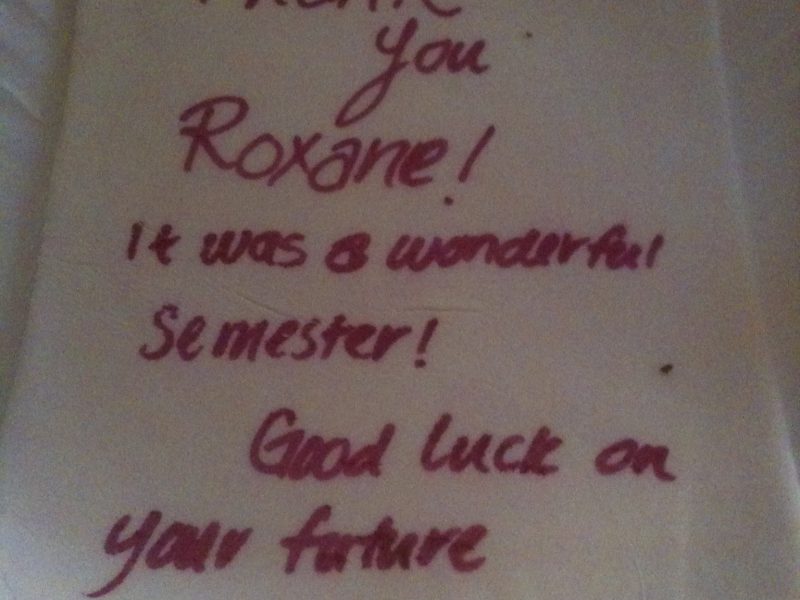 Thank
you
Roxane!
It was a wonderful
semester!
Good luck on
your future